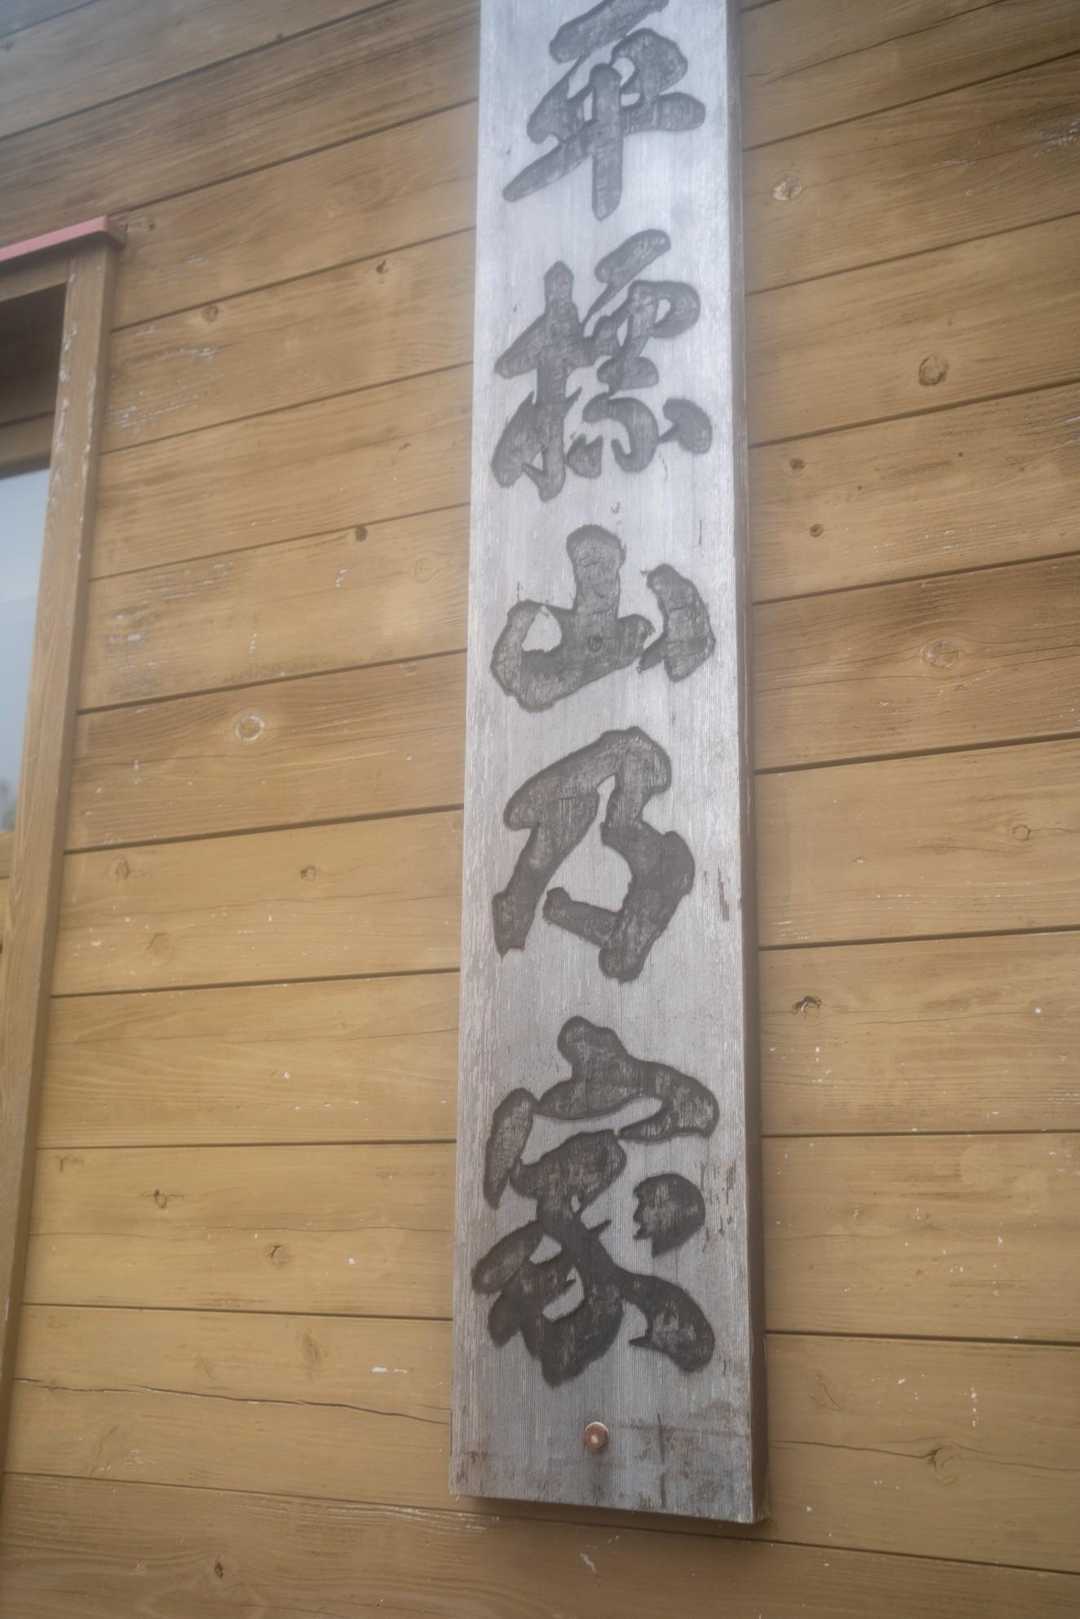 平標山乃家